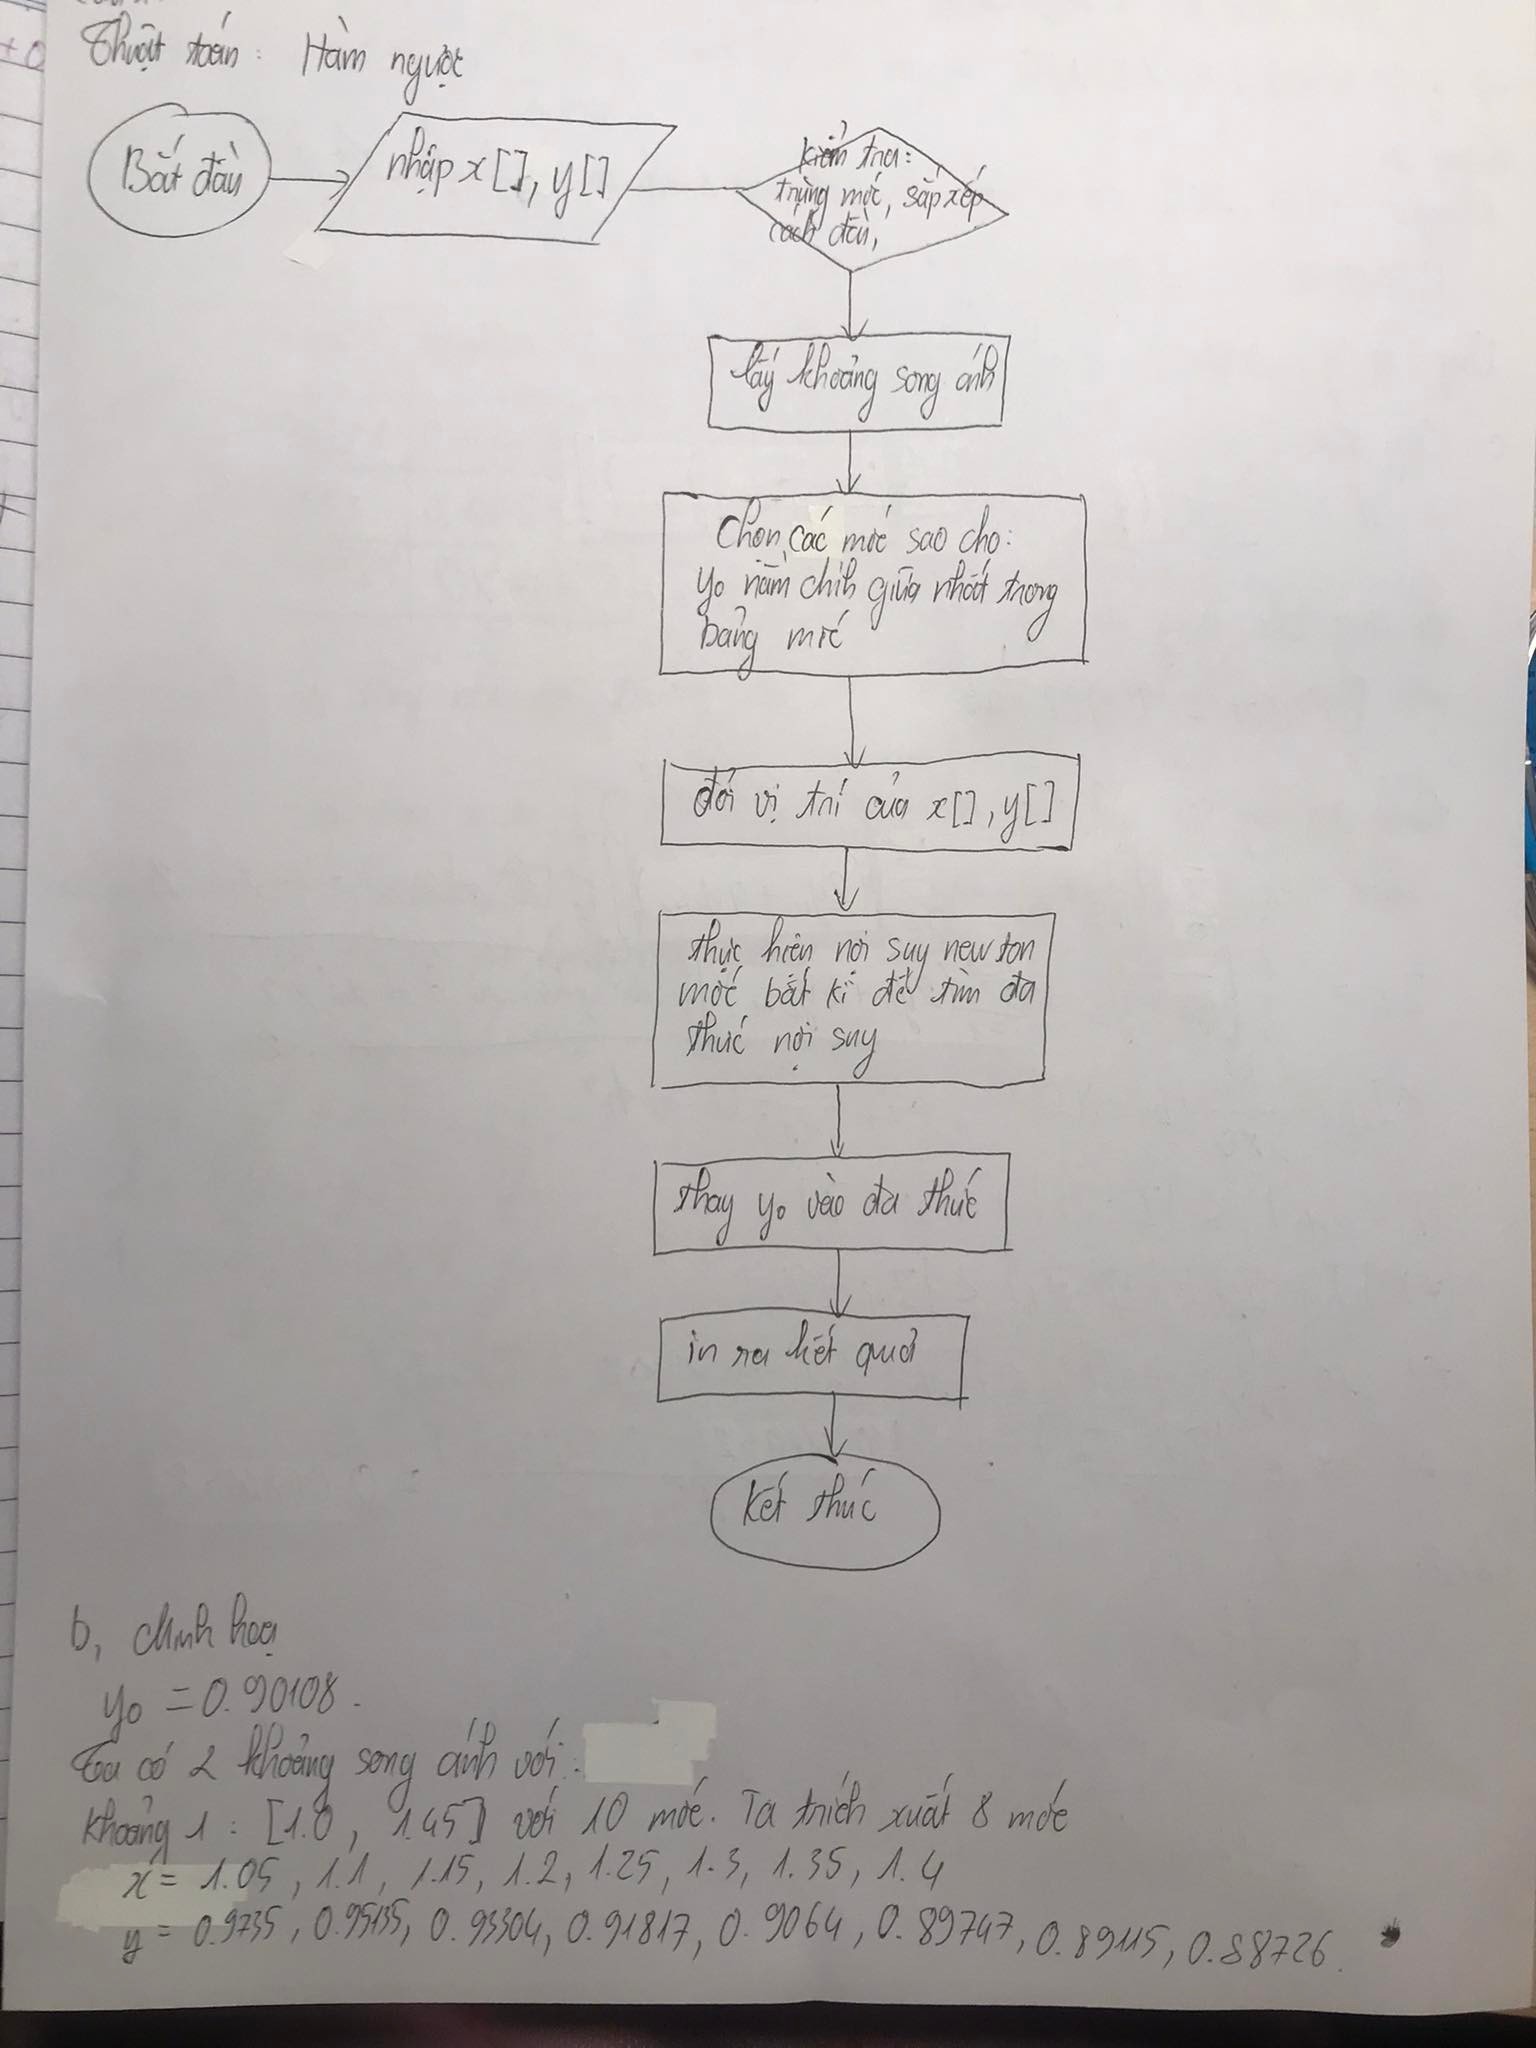 Thuật toán: Hàm ngược
Bắt đầu
nhập x[], y[]
kiểm tra:
trùng mốc, sắp xếp
cách đều,
lấy khoảng song ánh
Chọn các mốc sao cho:
y₀ nằm chính giữa nhất trong
bảng mốc
đổi vị trí của x[], y[]
thực hiện nội suy newton
mốc bất kì để tìm đa
thức nội suy
thay y₀ vào đa thức
in ra kết quả
Kết thúc
b, Minh hoạ
y₀ = 0.90108.
Ta có 2 khoảng song ánh với:
Khoảng 1: [1.0, 1.45] với 10 mốc. Ta trích xuất 8 mốc
x = 1.05, 1.1, 1.15, 1.2, 1.25, 1.3, 1.35, 1.4
y = 0.9735, 0.95135, 0.93304, 0.91817, 0.9064, 0.89747, 0.89115, 0.88726.